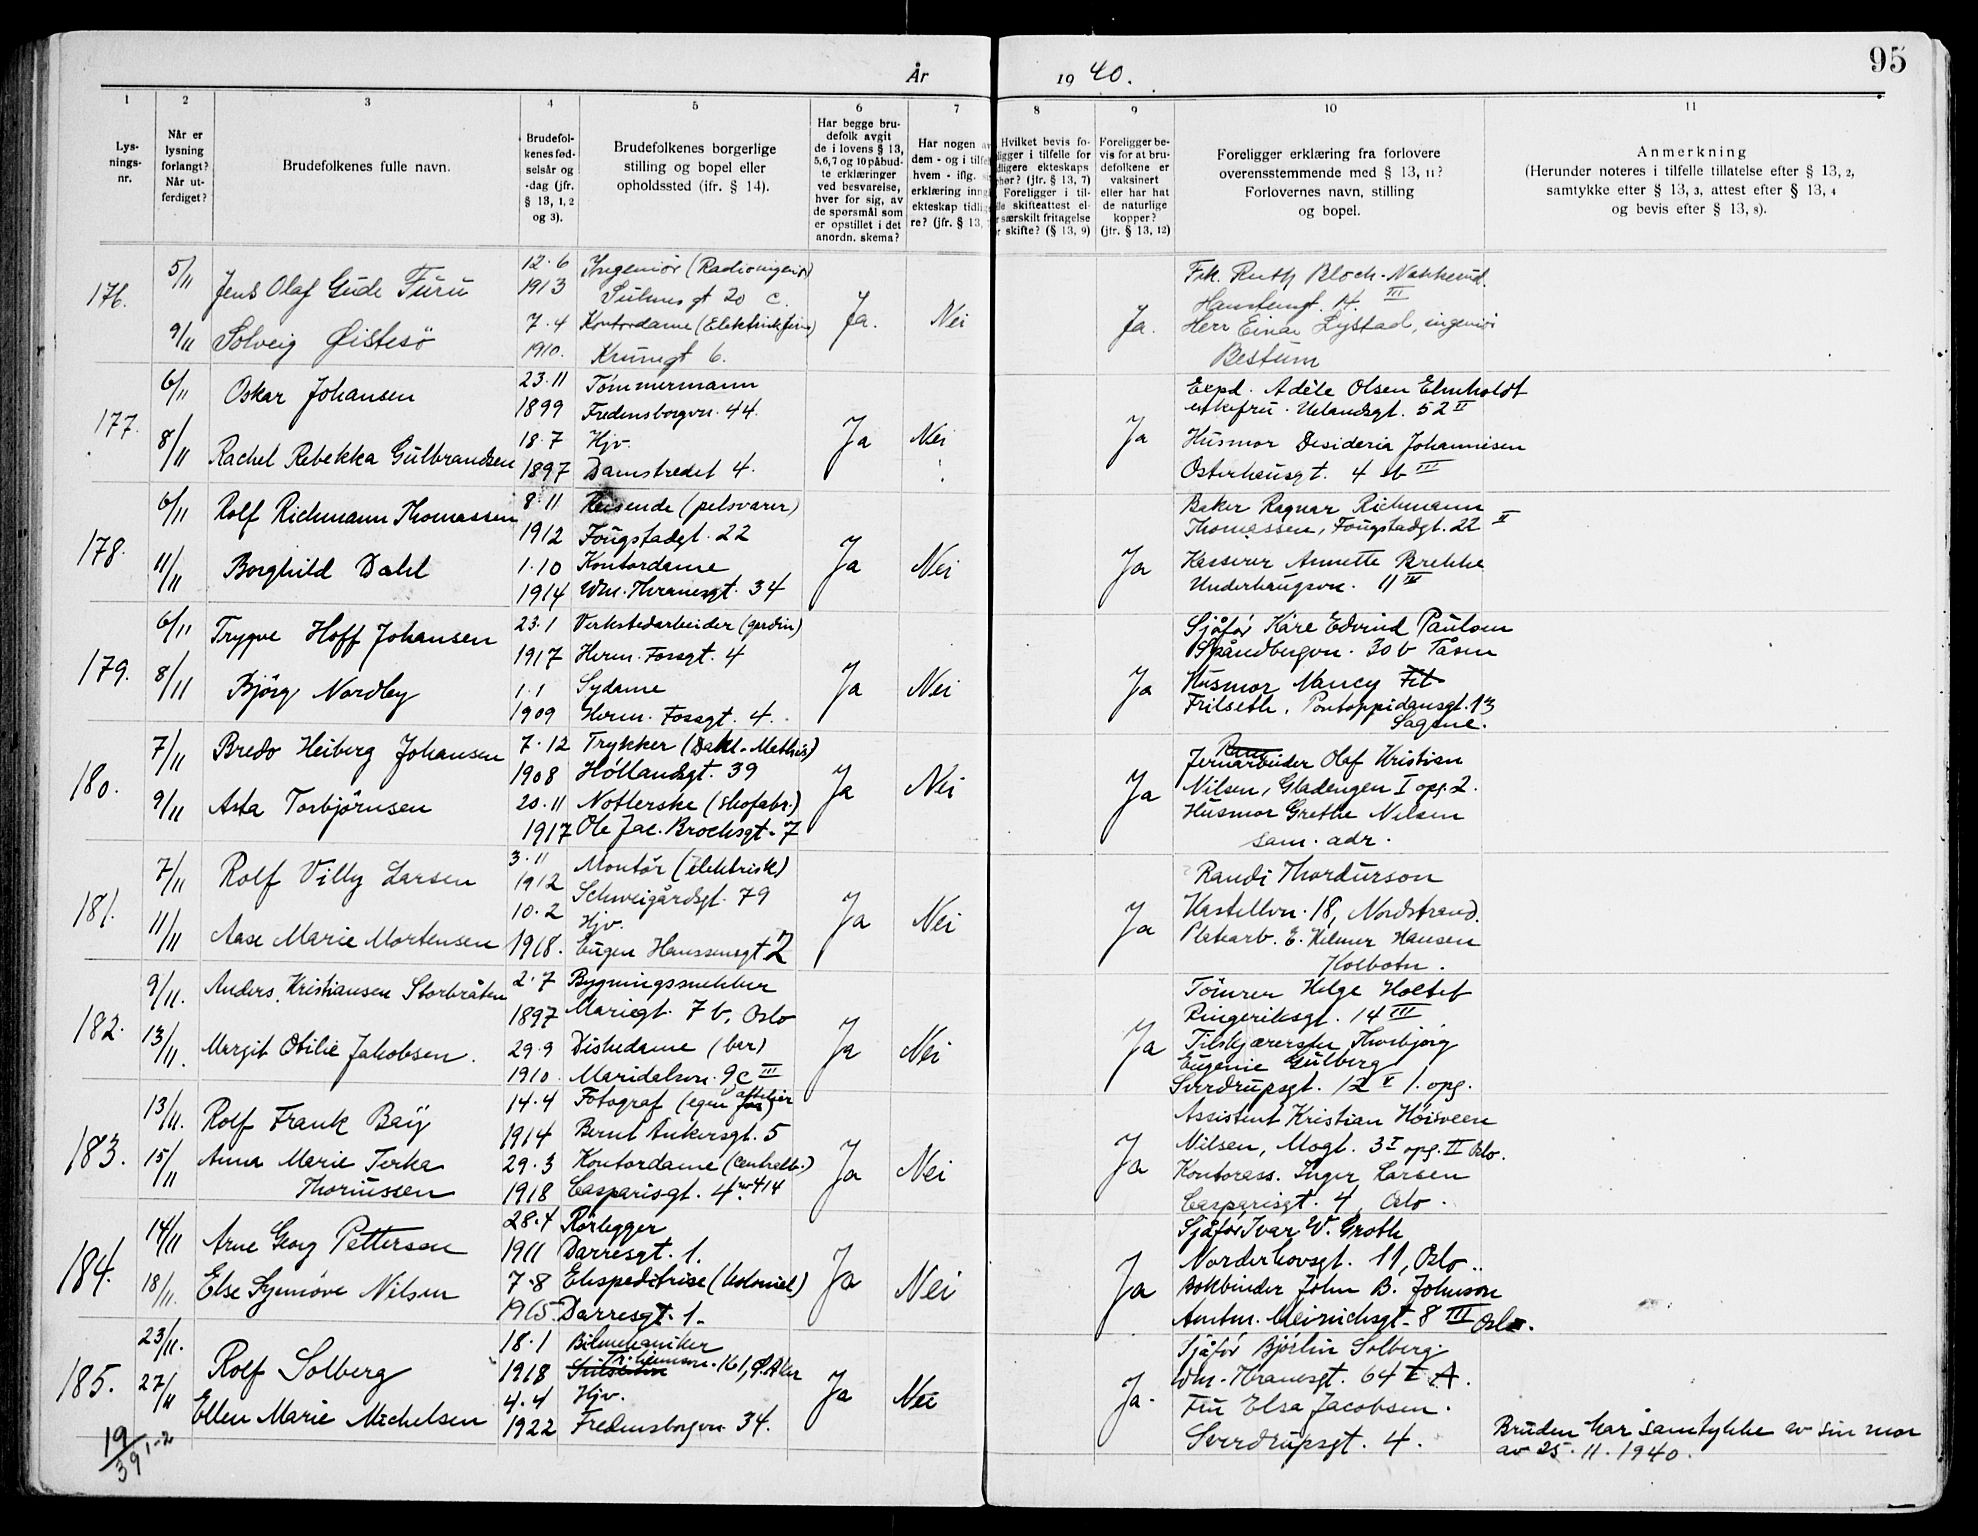 95
År 19 40.
1 2 3 4 5 6 7 8 9 10 11
Lysnings-nr.
Når er lysning forlangt? Når utferdiget?
Brudefolkenes fulle navn.
Brudefolkenes fødselsår og -dag (jfr. § 13, 1, 2 og 3).
Brudefolkenes borgerlige stilling og bopel eller opholdssted (ifr. § 14).
Har begge brudefolk avgitt de i lovens § 13, 5, 6, 7 og 10 påbudte erklæringer ved besvarelse, hver for sig, av de spørsmål som er opstillet i det anordn. skema?
Har nogen av dem - og i tilfelle hvem - iflg. erklæring inngått ekteskap tidligere? (jfr. § 13,
Hvilket bevis foreligger i tilfelle for tidligere ekteskaps ophør? (jfr. § 13, 7) Foreligger i tilfelle skifteattest el. særskilt fritagelse for skifte? (§ 13, 9)
Foreligger bevis for at brudefolkene er vaksinert eller har hatt de naturlige kopper? (jfr. § 13, 12)
Foreligger erklæring fra forlovere overensstemmende med § 13, 11? Forlovernes navn, stilling og bopel.
Anmerkning
(Herunder noteres i tilfelle tillatelse efter § 13, 2, samtykke etter § 13, 3, attest efter § 13, 4 og bevis efter § 13, 8).
176.
5/11 Jens Olaf Gude Furu 12.6 1913 Ingeniør (Radioingeniør)
gt 20 c.
9/11 Solveig Øistesö 7.4 1910. Kontordame
Krumgt 6.
Ja. Nei Ja.
Frk. Ruth Bloch-Nakkerud.
14. III
Herr Einar Lystad, ingeniør
Bestum
177.
6/11 Oskar Johansen 23.11 1899 Tömmermann
Fredensborgvn. 44.
8/11 Rachel Rebekka Gulbrandsen 18.7 1897 Hjv.
Damstredet 4.
Ja Nei Ja
Expd. Adèle Olsen Elmholdt
enkefru. Uelandsgt. 52 II
Husmor Desideria Johannisen
Osterhausgt. 4 b III
178.
6/11 Rolf Richmann Thomassen 8.11 1912 Reisende (pelsvarer)
Fougstadgt. 22
11/11 Borghild Dahl 1.10 1914 Kontordame
Wm. Thranesgt. 34
Ja Nei Ja
Baker Ragnar Richmann
Thomassen, Fougstadgt. 22 II
Kasserer Annette Brekke
Underhaugsvn. 11 III
179.
6/11 Trygve Hoff Johansen 23.1 1917 Verkstedarbeider (gardin)
Herm. Fossgt. 4
8/11 Bjørg Nordby 1.1 1909 Sydame
Herm. Fossgt. 4.
Ja Nei Ja
Sjåfør Kåre Edvind Paulsen
Spåndbergvn. 30b Tåsen
Husmor Nancy Fit
Frilseth, Pontoppidansgt. 13
Sagene.
180.
7/11 Bredo Heiberg Johansen 7.12 1908 Trykker
Hollandsgt. 39
9/11 Asta Torbjørnsen 20.11 1917 Notlerske (skofabr.)
Ole Jac. Brochsgt. 7
Ja Nei Ja
Jernarbeider Olaf Kristian
Nilsen, Gladengen I opg. 2.
Husmor Grethe Nilsen
sam. adr.
181.
7/11 Rolf Villy Larsen 3.11 1912 Montør (elektrisk)
Schweigårdsgt. 79
11/11 Aase Marie Mortensen 10.2 1918. Hjv.
Eugen Hanssensgt 2
Ja Nei Ja
Randi Thordurson
Kastellvn. 18, Nordstrand.
Platearb. E. Hilmer Hansen
Kolbotn.
182.
9/11. Anders Kristiansen Storbråten 2.7 1897 Bygningssnekker
Mariegt. 7b, Oslo
13/11. Margit Otilie Jakobsen. 29.9 1910. Diskedame (bar)
Maridalsvn. 9c III
Ja Nei Ja
Tömrer Helge Holtet
Ringeriksgt. 14 III
Tilskjærerske Thorbjørg
Eugenie Gulberg
Sverdrupsgt. 12 V 1. opg.
183.
13/11. Rolf Frank Baÿ 14.4 1914 Fotograf (egen attelier)
Bernt Ankersgt. 5
15/11 Anna Marie Terka
Thoriussen 29.3 1918 Kontordame (centralb.)
Casparisgt. 4 nr 414
Ja Nei Ja
Assistent Kristian Hoisveen
Nilsen, Mogt. 3 I opg. II Oslo.
Kontorass. Inger Larsen
Casparisgt. 4, Oslo.
184.
14/11 Arne Georg Pettersen 28.4 1911 Rørlegger
Darresgt. 1.
18/11. Else Synnöve Nilsen 7.8 1915 Ekspeditrise (kolonial)
Darresgt. 1.
Ja Nei Ja
Sjåfør Ivar W. Groth
Norderhovsgt. 11, Oslo.
Bokbinder John B. Johnson
Amtm. Meinichsgt. 8 III Oslo.
185.
23/11. Rolf Solberg 18.1 1918 Bilmekaniker
161, Ø. Aker
27/11 Ellen Marie Michelsen 4.4 1922 Hjv.
Fredensborgvn 34.
Ja Nei Ja.
Sjåfør Bjørlin Solberg.
Wm. Thranesgt. 64 I A.
Fru Elsa Jacobsen.
Sverdrupsgt. 4.
Bruden har samtykke av sin mor
av 25.11.1940.
19/39 1-2